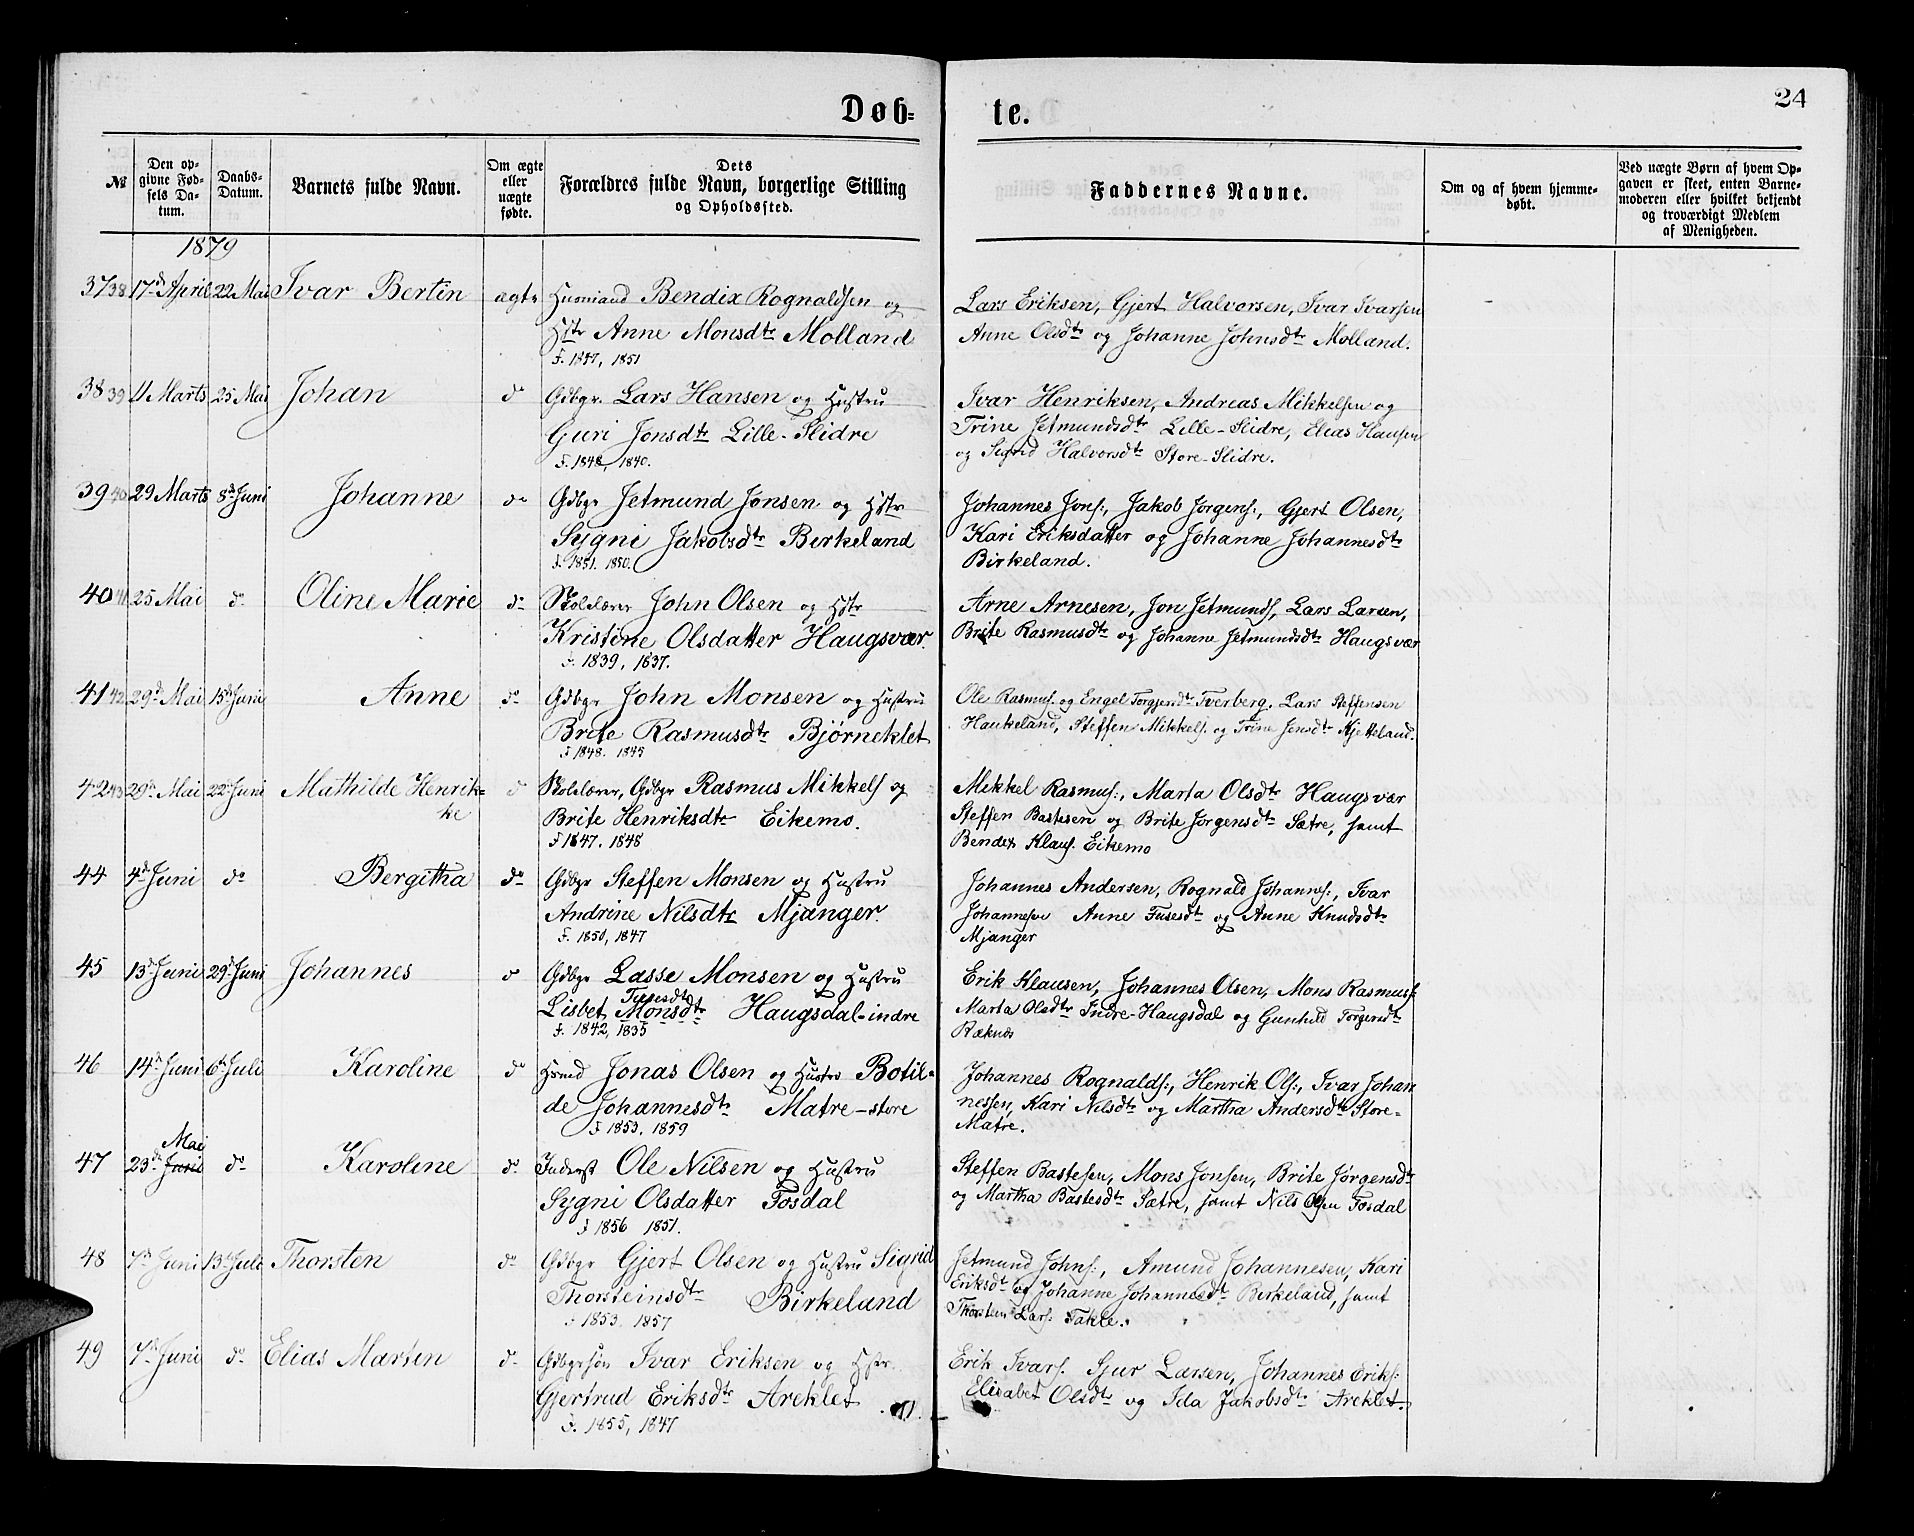 Døb=
te.
24
№
Den op-
givne Fød-
sels Da-
tum.
Daabs-
Datum.
Barnets fulde Navn.
Om ægte
eller
uægte
fødte.
Dets
Forældres fulde Navn, borgerlige Stilling
og Opholdssted.
Faddernes Navne.
Om og af hvem hjemme-
døbt.
Ved uægte Børn af hvem Op-
gaven er skeet, enten Barne-
moderen eller hvilket bekjendt
og troværdigt Medlem
af Menigheden.
1879
37 38 17de April 22 Mai Ivar Bertin ægte Husmand Bendix Rognaldsen og
Hstr Anne Monsdtr Molland
F. 1847, 1851
Lars Eriksen, Gjert Halvorsen, Ivar Ivarsen
Anne Olsdtr og Johanne Johnsdtr Molland.
38 39 11 Marts 25 Mai Johan do Gdbgr. Lars Hansen og Hustru
Guri Jonsdtr Lille-Slidre
F. 1848, 1840.
Ivar Henriksen, Andreas Mikkelsen og
Trine Jetmundsdtr Lille-Slidre, Elias Hansen
og Sigrid Halvorsdtr Store-Slidre.
39 40 29 Marts 8de Juni Johanne do Gdbgr Jetmund Jonsen og Hstr
Sygni Jakobsdtr Birkeland
F. 1851. 1850.
Johannes Jons:, Jakob Jørgens:, Gjert Olsen,
Kari Eriksdatter og Johanne Johannesdtr
Birkeland.
40 41 25 Mai do Oline Marie do Skolelærer John Olsen og Hstr
Kristine Olsdatter Haugsvær.
F. 1839, 1837.
Arne Arnesen, Jon Jetmunds, Lars Larsen,
Brite Rasmusdtr og Johanne Jetmundsdtr Haugsvær
41 42 29de Mai 15de Juni Anne do Gdbgr John Monsen og Hustru
Brite Rasmusdtr Bjørneklet
F 1848. 1845
Ole Rasmus: og Engel Torgjersdtr Tverberg. Lars Steffensen
Haukeland, Steffen Mikkels. og Trine Jensdtr Kjetteland.
42 43 29de Mai 22de Juni Mathilde Henrik-
ke
do Skolelærer, Gdbgr Rasmus Mikkels og
Brite Henriksdtr Eikemo.
F 1847. 1848
Mikkel Rasmus:, Marta Olsdtr Haugsvær
Steffen Bastesen og Brite Jørgensdtr Sætre, samt
Bendex Klaus. Eikemo
44 4de Juni do Bergitha do Gdbgr Steffen Monsen og Hustru
Andrine Nilsdtr Mjanger.
F. 1850, 1847
Johannes Andersen, Rognald Johannes:, Ivar
Johannesen Anne Tusesdtr og Anne Knudsdtr
Mjanger
45 13de Juni 29de Juni Johannes do Gdbgr Lasse Monsen og Hustru
Tusesdtr
Lisbet Monsdtr Haugsdal-indre
F. 1842, 1835
Erik Klausen, Johannes Olsen, Mons Rasmus:
Marta Olsdtr Indre-Haugsdal og Gunhild Torgersdtr
Ræknes
46 14de Juni 6de Juli Karoline do Hsmd Jonas Olsen og Hustru Botil-
de Johannesdtr Matre-store
F 1853. 1859
Johannes Rognalds:, Henrik Ols:, Ivar Johan
nessen, Kari Nilsdtr og Martha Andersdtr Store-
Matre.
Mai
47 23de Juni do Karoline do Inderst Ole Nilsen og Hustru
Sygni Olsdatter Fosdal
F 1856 1851.
Steffen Bastesen, Mons Jonsen, Brite Jørgensdtr
og Martha Bastesdtr Sætre, samt Nils Olsen Fosdal
48 7de Juni 13de Juli Thorsten do Gdbgr Gjert Olsen og Hustru Sigrid
Thorsteinsdtr Birkeland
F 1853. 1857
Jetmund Johns:, Amund Johannesen, Kari
Eriksdtr og Johanne Johannesdtr Birkeland, samt
Thorstein Lars: Takle.
49 7de Juni do Elias Martin do Gdbgrsøn Ivar Eriksen og Hstr.
Gjertrud Eriksdtr Areklet
F. 1855, 1847
Erik Ivars. Sjur Larsen, Johannes Eriks:
Elisabet Olsdtr og Ida Jakobsdtr Areklet.